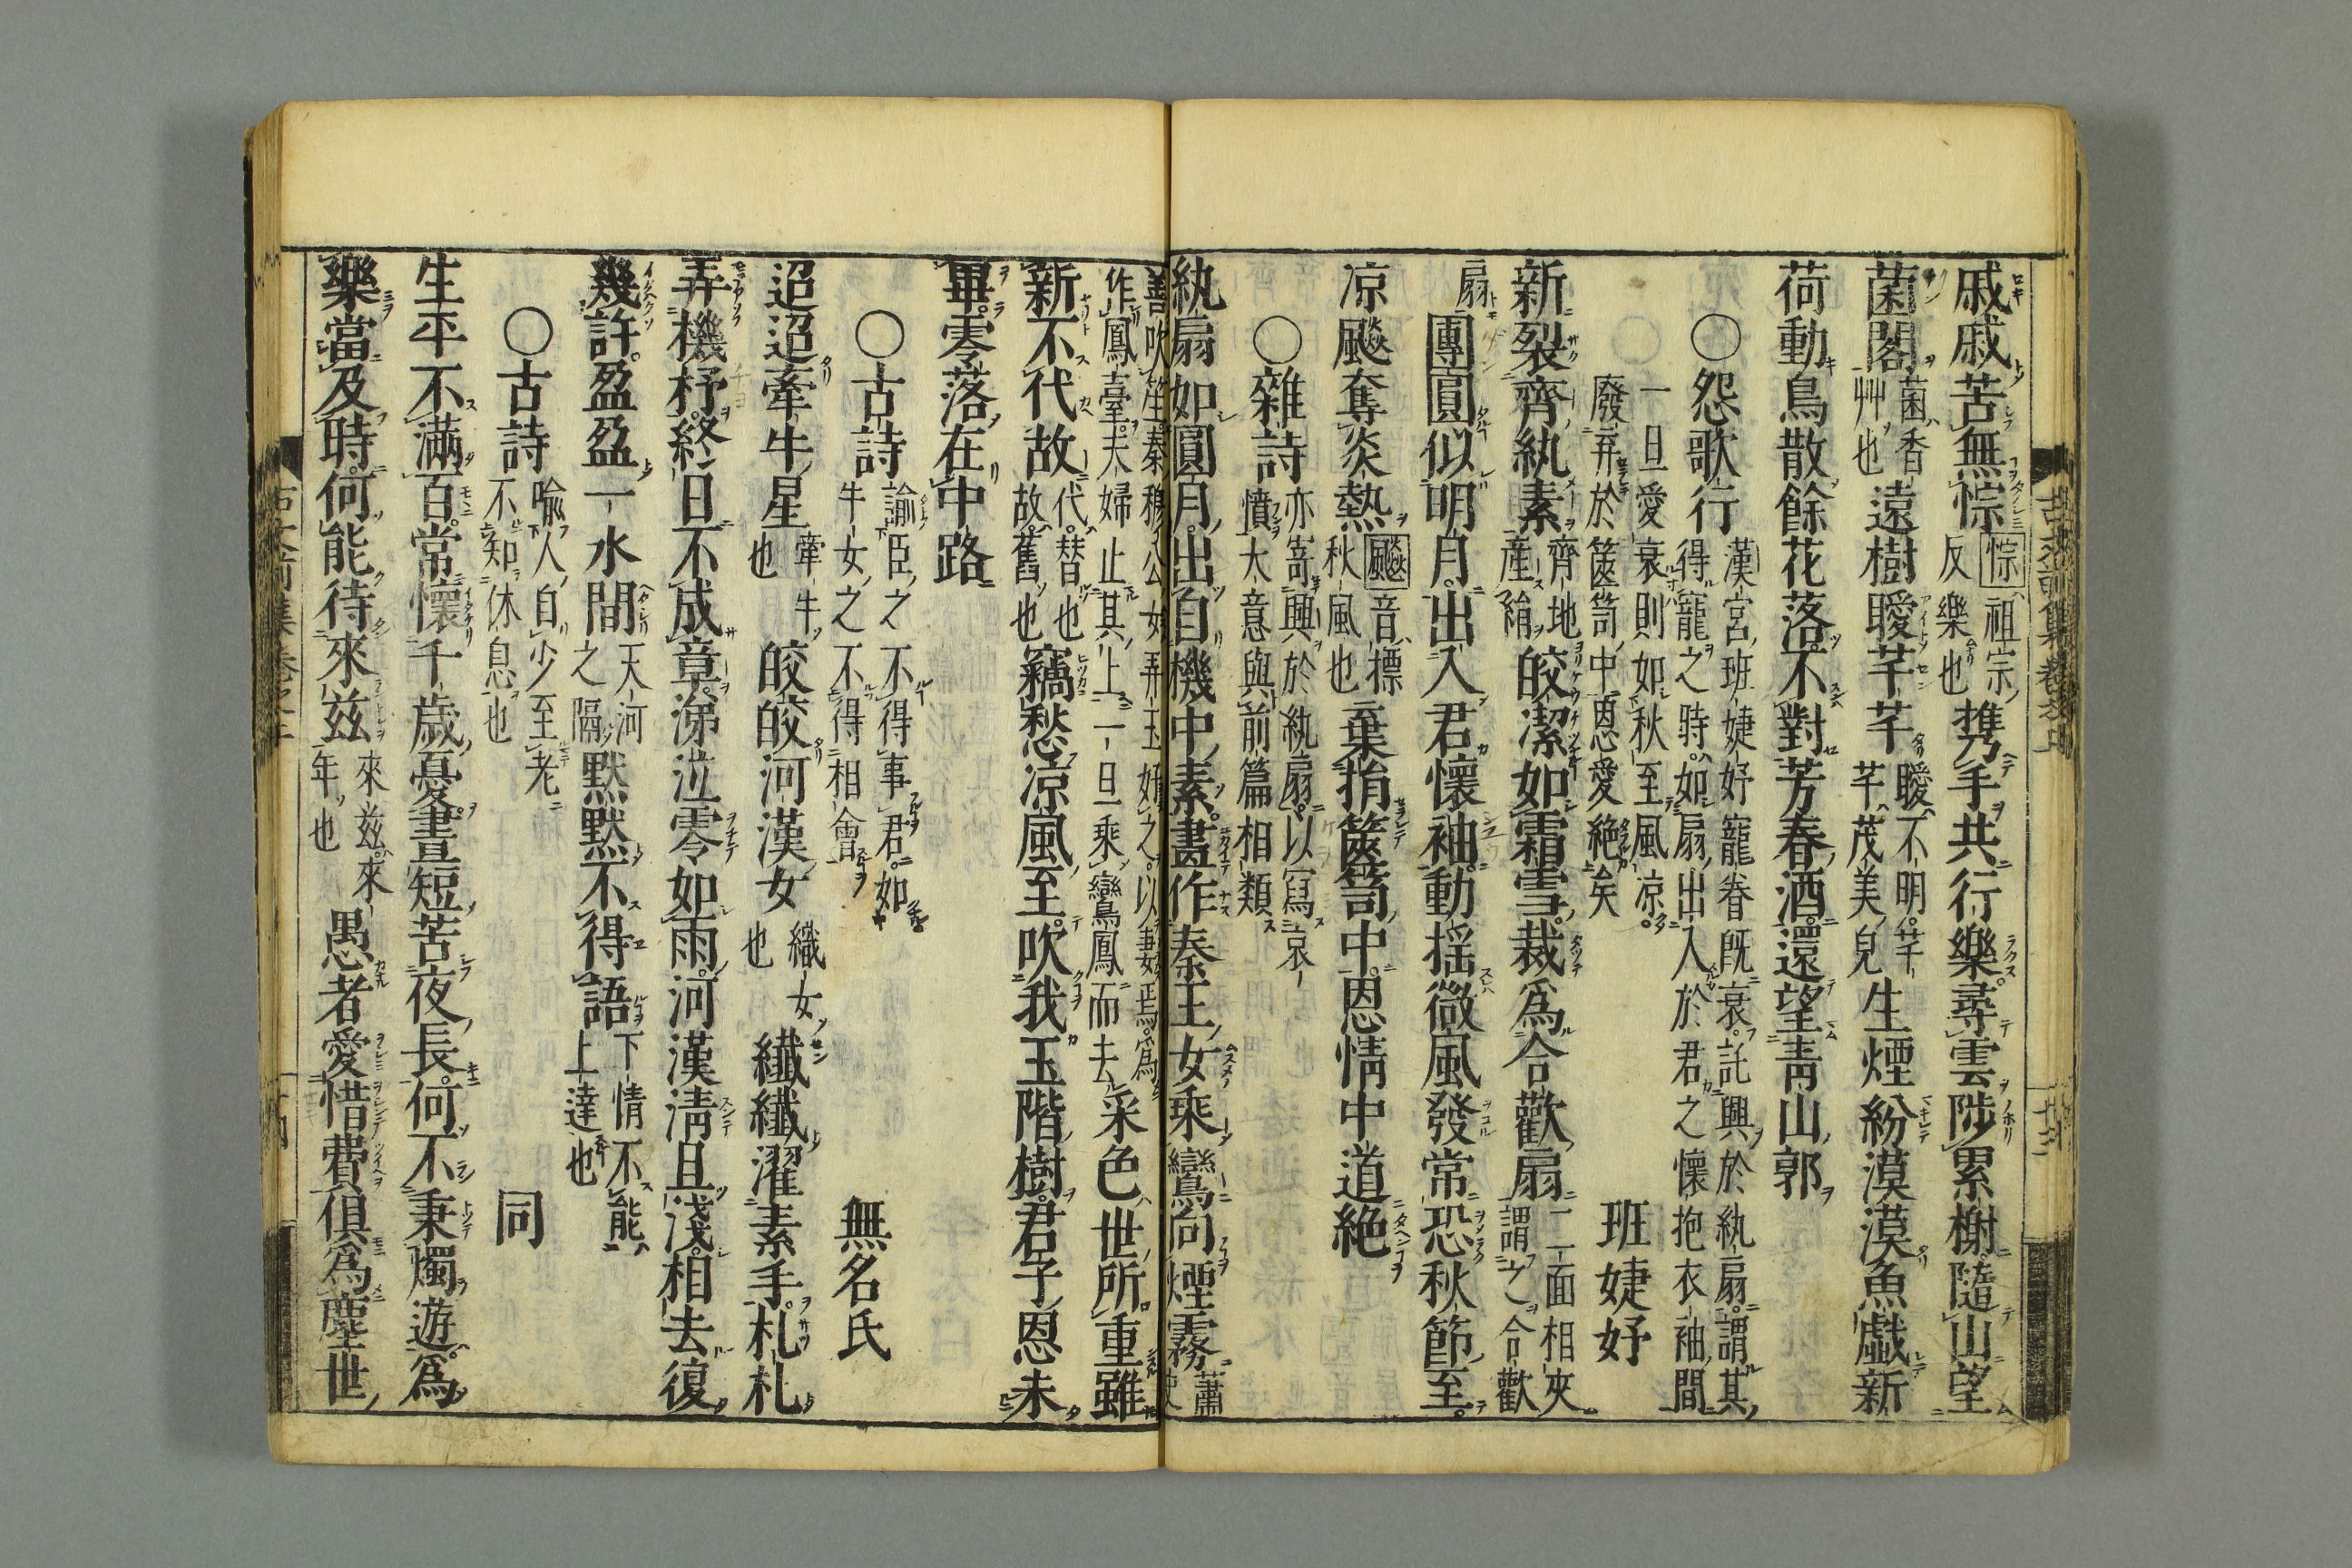 戚戚苦無悰悰祖宗反樂也携手共行樂尋雲陟累榭隨山望
菌閣菌香艸也遠樹曖芊芊曖不明芊芊茂美皃生煙紛漠漠魚戱新
荷動鳥散餘花落不對芳春酒還望靑山郭
〇怨歌行漢宮班婕妤寵眷旣衰託興於紈扇謂其得寵之時如扇出入於君之懷抱衣袖間
一旦愛衰則如秋至風凉廢弃於篋笥中恩愛絶矣班婕妤
新裂齊紈素齊地產絹皎潔如霜雪裁爲合歡扇二面相夾謂之合歡
扇團圓似明月出入君懷袖動搖微風發常恐秋節至
凉飈奪炎熱飈音標秋風也棄捐篋笥中恩情中道絶
〇雜詩亦嵜興於紈扇以寫哀憤大意與前篇相類
紈扇如圓月出自機中素畫作秦王女乘鸞向煙霧蕭史
善吹笙秦穆公女弄玉好之以妻焉爲作鳳臺夫婦止其上一旦乘鸞鳳而去采色世所重雖
新不代故代替也故舊也竊愁凉風至吹我玉階樹君子恩未
畢零落在中路
〇古詩諭臣之不得事君如牛女之不得相會無名氏
迢迢牽牛星牽牛也皎皎河漢女織女也纖纖濯素手札札
弄機杼終日不成章涕泣零如雨河漢淸且淺相去復
幾許盈盈一水間天河之隔默默不得語下情不能上達也
〇古詩喩人自少至老不知休息也同
生平不滿百常懷千歲憂晝短苦夜長何不秉燭遊爲
樂當及時何能待來兹來兹來年也愚者愛惜費俱爲塵世